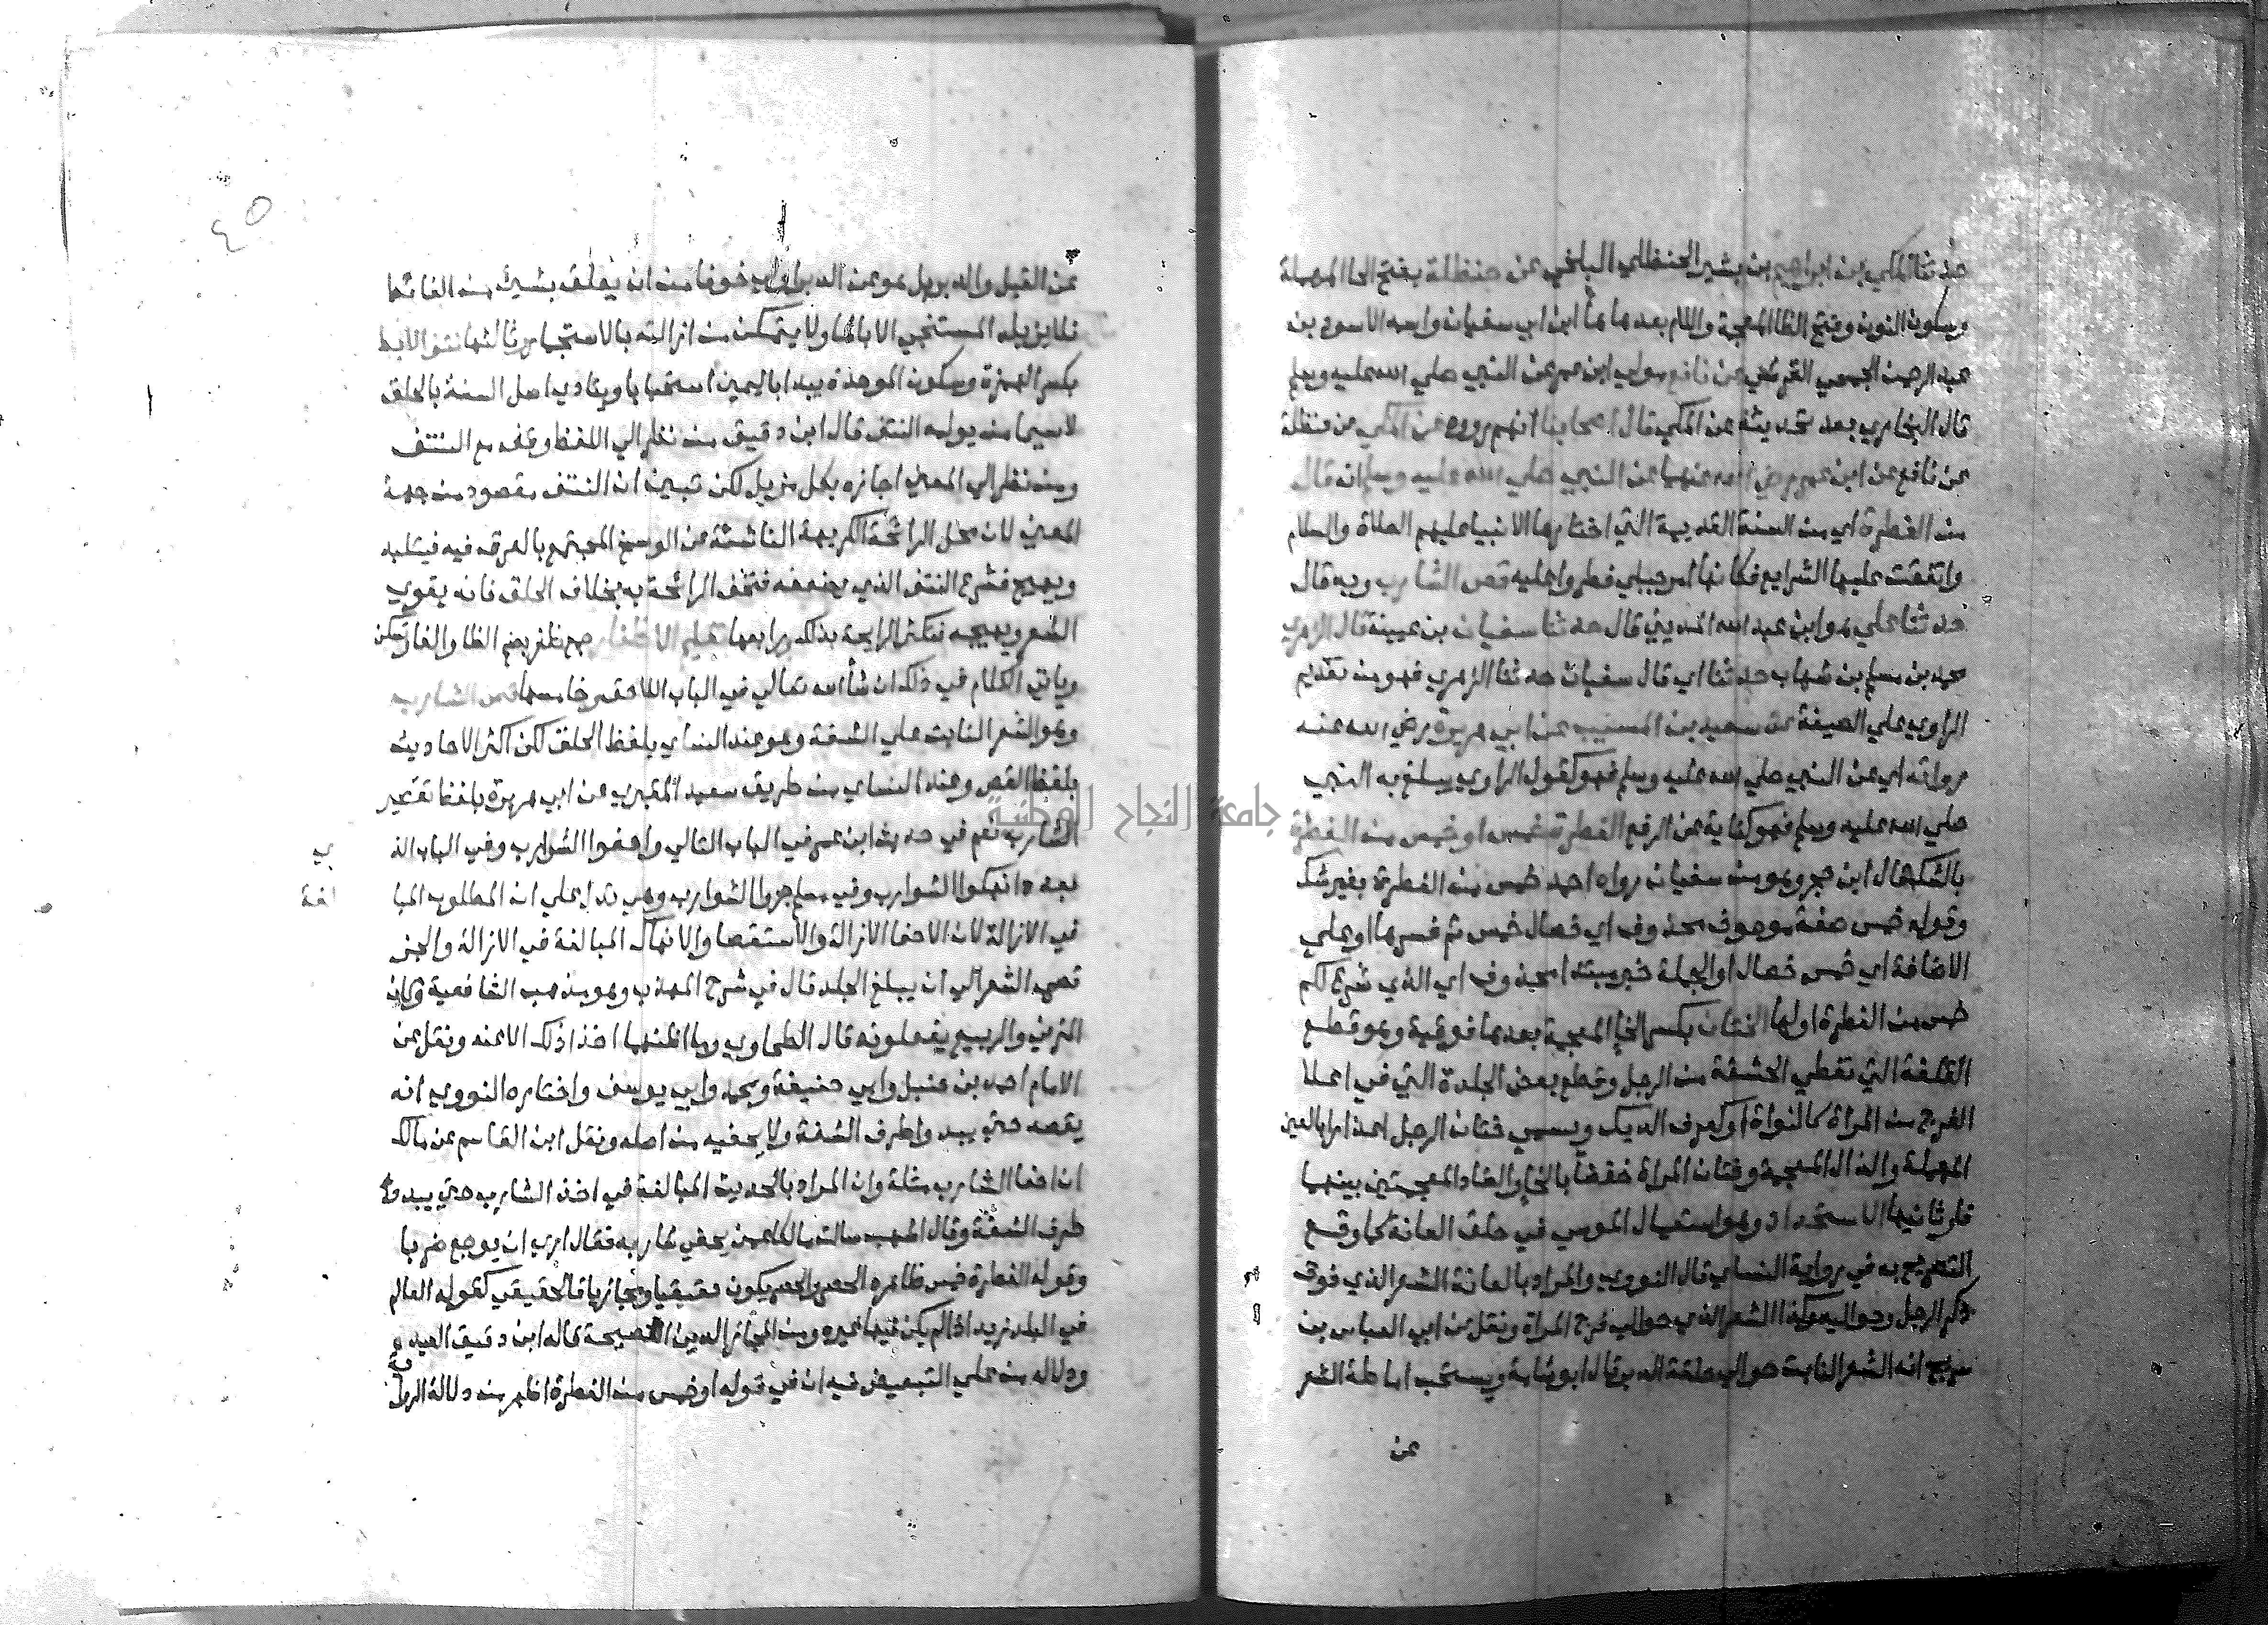 حدثنا المكي بن ابراهيم بن بشير الحنظلي البلخي عن حنظلة بفتح الحا المهملة
وسكون النون وفتح الظا المعجمة واللام بعدها ها ابن ابي سفيان واسمه الاسود بن
عبد الرحمن الجمحي القرشي عن نافع مولي ابن عمر عن النبي صلي الله عليه وسلم
قال البخاري بعد تحديثه عن المكي قال اصحابنا انهم رووه عن المكي عن حنظلة
عن نافع عن ابن عمر رضي الله عنهما عن النبي صلي الله عليه وسلم انه قال
من الفطرة اي من السنة القديمة التي اختارها الانبيا عليهم الصلاة والسلام
واتفقت عليها الشرايع فكانها امر جبلي فطروا عليه قص الشارب وبه قال
حدثنا علي هو ابن عبد الله المديني قال حدثنا سفيان بن عيينة قال الزهري
محمد بن مسلم بن شهاب حدثنا اي قال سفيان حدثنا الزهري فهو من تقديم
الراوي علي الصيغة عن سعيد بن المسيب عن ابي هريرة رضي الله عنه
رواته اي عن النبي صلي الله عليه وسلم فهو كقول الراوي يبلغ به النبي
صلي الله عليه وسلم فهو كناية عن الرفع الفطرة خمس او خمس من الفطرة
بالشك قال ابن حجر وهو من سفيان رواه احمد خمس من الفطرة بغير شك
وقوله خمس صفة موصوف محذوف اي خصال خمس ثم فسرها او علي
الاضافة اي خمس خصال او الجملة خبر مبتدا محذوف اي الذي شرع لكم
خمس من الفطرة اولها الختان بكسر الخا المعجمة بعدها فوقية وهو قطع
القلفة التي تغطي الحشفة من الرجل وقطع بعض الجلدة التي في اعلا
الفرج من المراة كالنواة او كعرف الديك ويسمي ختان الرجل اعذارا بالعين
المهملة والذال المعجمة وختان المراة خفضا بالخا والضاد المعجمتين بينهما
فا وثانيها الاستحداد وهو استعمال الموسي في حلق العانة كما وقع
التصريح به في رواية النساي قال النووي والمراد بالعانة الشعر الذي فوق
ذكر الرجل وحواليه وكذا الشعر الذي حوالي فرج المراة ونقل عن ابي العباس بن
سريج انه الشعر النابت حوالي حلقة الدبر قال ابو شامة ويستحب اماطة الشعر
عن
٤٥
عن القبل والدبر بل هو عن الدبر اولي خوفا من ان يعلق بشي من الغائط
فلا يزيله المستنجي الا بالما ولا يتمكن من ازالته بالاستجمار وثالثها نتف الابط
بكسر الهمزة وسكون الموحدة يبدا باليمين استحبابا ويتادي اصل السنة بالحلق
لاسيما من يولمه النتف قال ابن دقيق من نظر الي اللفظ وقف مع النتف
ومن نظر الي المعني اجازه بكل مزيل لكن تبين ان النتف مقصود من جهة
المعني لان محل الرائحة الكريهة الناشئة عن الوسخ المجتمع بالعرق فيه فيتلبد
ويهيج فشرع النتف الذي يضعفه فتخف الرائحة به بخلاف الحلق فانه يقوي
الشعر ويهيجه فتكثر الرايحة بذلك ورابعها تقليم الاظفار جمع ظفر بضم الظا والفا وتسكن
وياتي الكلام في ذلك ان شا الله تعالي في الباب اللاحق وخامسها قص الشارب
وهو الشعر النابت علي الشفة وهو عند النساي بلفظ الحلق لكن اكثر الاحاديث
بلفظ القص وعند النساي من طريق سعيد المقبري عن ابي هريرة بلفظ تقصير
الشارب نعم في حديث ابن عمر في الباب التالي واحفوا الشوارب وفي الباب الذ
ي
بعده انهكوا الشوارب وفي مسلم جزوا الشوارب وهي تدل علي ان المطلوب المبا
لغة
في الازالة لان الاحفا الازالة والاستقصا والانهاك المبالغة في الازالة والجز
قص الشعر الي ان يبلغ الجلد قال في شرح المهذب وهو مذهب الشافعية وكان
المزني والربيع يفعلونه قال الطحاوي وما اظنهما اخذا ذلك الا عنه ونقل عن
الامام احمد بن حنبل وابي حنيفة ومحمد وابي يوسف واختاره النووي انه
يقصه حتي يبدو اطرف الشفة ولا يحفيه من اصله ونقل ابن القاسم عن مالك
ان احفا الشارب مثلة وان المراد بالحديث المبالغة في اخذ الشارب حتي يبدو
طرف الشفة وقال اشهب سالت مالكا عمن يحفي شاربه فقال اري ان يوجع ضربا
وقوله الفطرة خمس ظاهره الحصر والحصر يكون حقيقيا ومجازيا فالحقيقي كقوله العالم
في البلد زيد اذا لم يكن فيها غيره ومن المجاز الدين النصيحة قاله ابن دقيق العيد
ودلالة من علي التبعيض فيه ان في قوله او خمس من الفطرة اظهر من دلالة الرواية
جامعة النجاح الوطنية